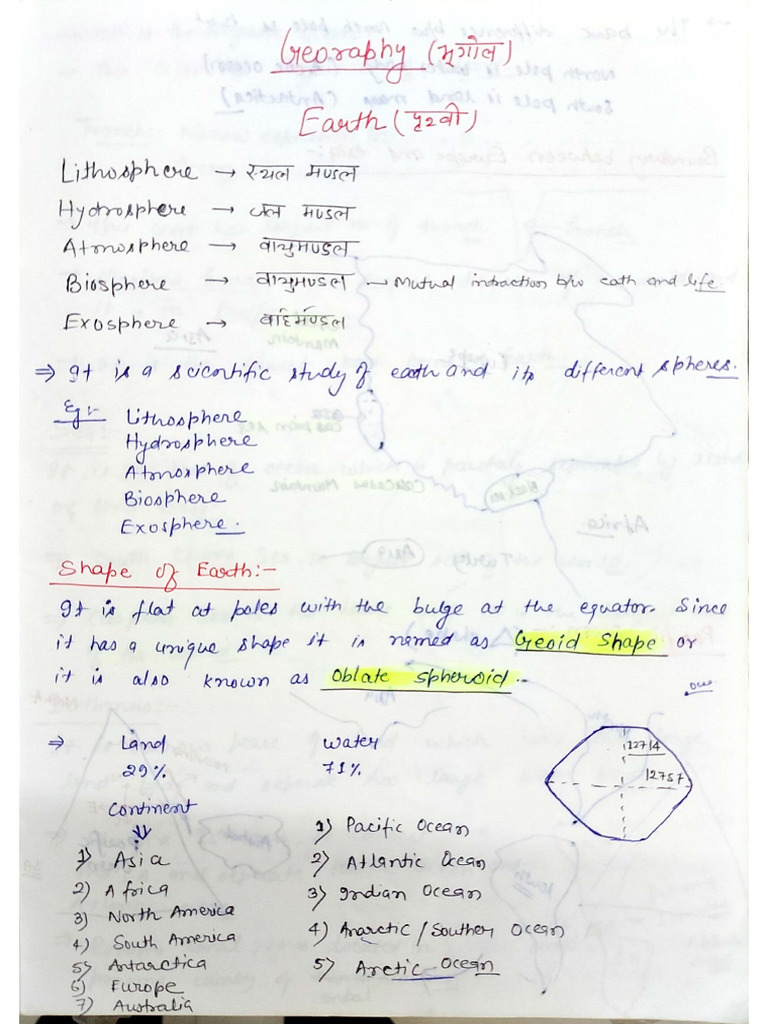 Georaphy (भूगोल)
Earth (पृथ्वी)
Lithosphere → स्थल मण्डल
Hydrosphere → जल मण्डल
Atmosphere → वायुमण्डल
Biosphere → वायुमण्डल → Mutual intraction b/w eath and life
Exosphere → बर्हिमण्डल
⇒ It is a scientific study of earth and its different spheres.
Eg:- Lithosphere
Hydrosphere
Atmosphere
Biosphere
Exosphere.
Shape of Earth:-
It is flat at poles with the bulge at the equator. Since
it has a unique shape it is named as Geoid Shape or
it is also known as Oblate spheroid.-
⇒ Land water
29% 71%
12714
12757
Continent
1) Asia
2) Africa
3) North America
4) South America
5) Antarctica
6) Europe
7) Australia
1) Pacific Ocean
2) Atlantic Ocean
3) Indian Ocean
4) Anarctic / Southern Ocean
5) Arctic Ocean